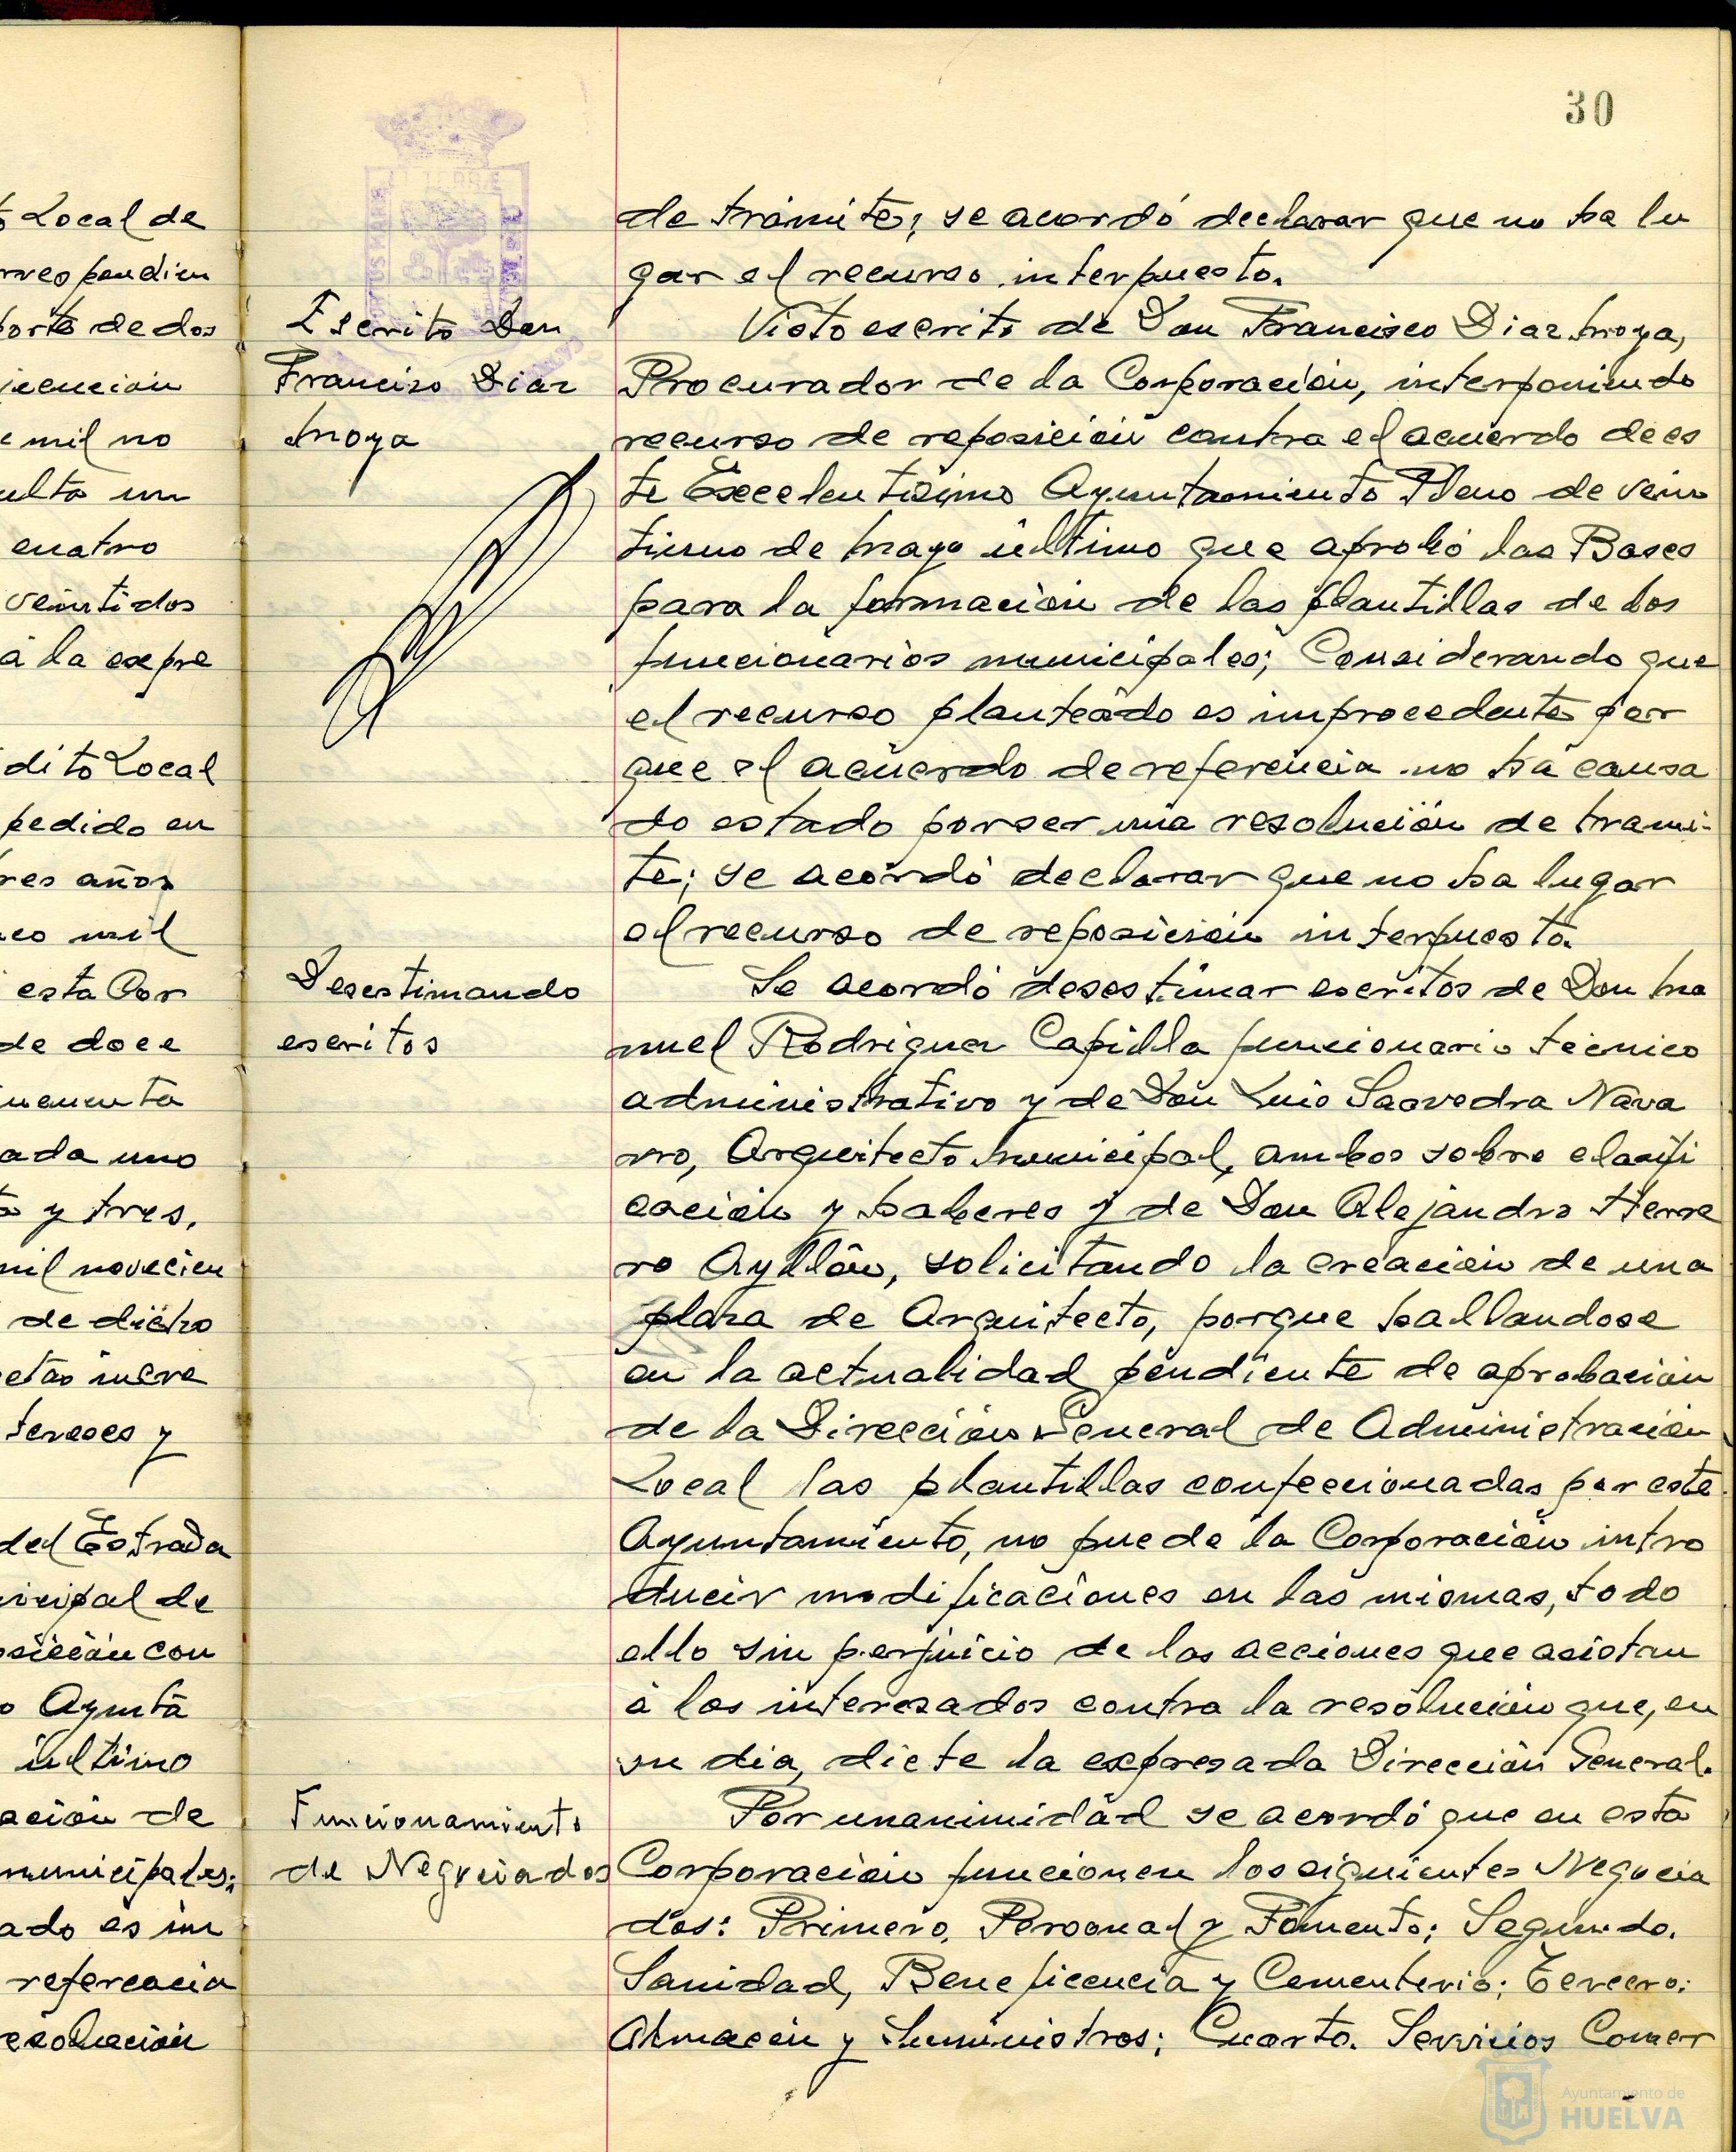 30
to Local de
rrespondien
porte de dos
jecución
e mil no
ulta un
cuatro
veintidos
á la expre
dito Local
pedido en
res años
co mil
esta Cor
de doce
ncuenta
ada uno
y tres,
mil novecien
de dicho
etas nueve
tereses y
del Estrada
nicipal de
osición con
o Ayunta
último
ación de
municipales;
ado es im
referencia
esolución
Escrito Don
Francisco Diaz
Moya
Desestimando
escritos
Funcionamiento
de Negociados
de trámite; se acordó declarar que no ha lu
gar el recurso interpuesto.
Visto escrito de Don Francisco Diaz Moya,
Procurador de la Corporación, interponiendo
recurso de reposición contra el acuerdo de es
te Excelentisimo Ayuntamiento Pleno de vein
tiuno de Mayo último que aprobó las Bases
para la formación de las plantillas de los
funcionarios municipales; Considerando que
el recurso planteado es improcedente por
que el acuerdo de referencia no ha causa
do estado por ser una resolución de trami-
te; se acordó declarar que no ha lugar
al recurso de reposición interpuesto.
Se acordó desestimar escritos de Don Ma
nuel Rodriguez Capilla funcionario técnico
administrativo y de Don Luis Saavedra Nava
rro, Arquitecto Municipal, ambos sobre clasifi
cación y haberes y de Don Alejandro Herre
ro Ayllón, solicitando la creación de una
plaza de Arquitecto, porque hallandose
en la actualidad pendiente de aprobación
de la Dirección General de Administración
Local las plantillas confeccionadas por este
Ayuntamiento, no puede la Corporación intro
ducir modificaciones en las mismas, todo
ello sin perjuicio de las acciones que asistan
á los interesados contra la resolución que, en
su dia, dicte la expresada Dirección General.
Por unanimidad se acordó que en esta
Corporación funcionen los siguientes Negocia
dos: Primero. Personal y Fomento; Segundo.
Sanidad, Beneficencia y Cementerio; Tercero:
Almacén y Suministros; Cuarto. Servicios Comer
Ayuntamiento de
HUELVA